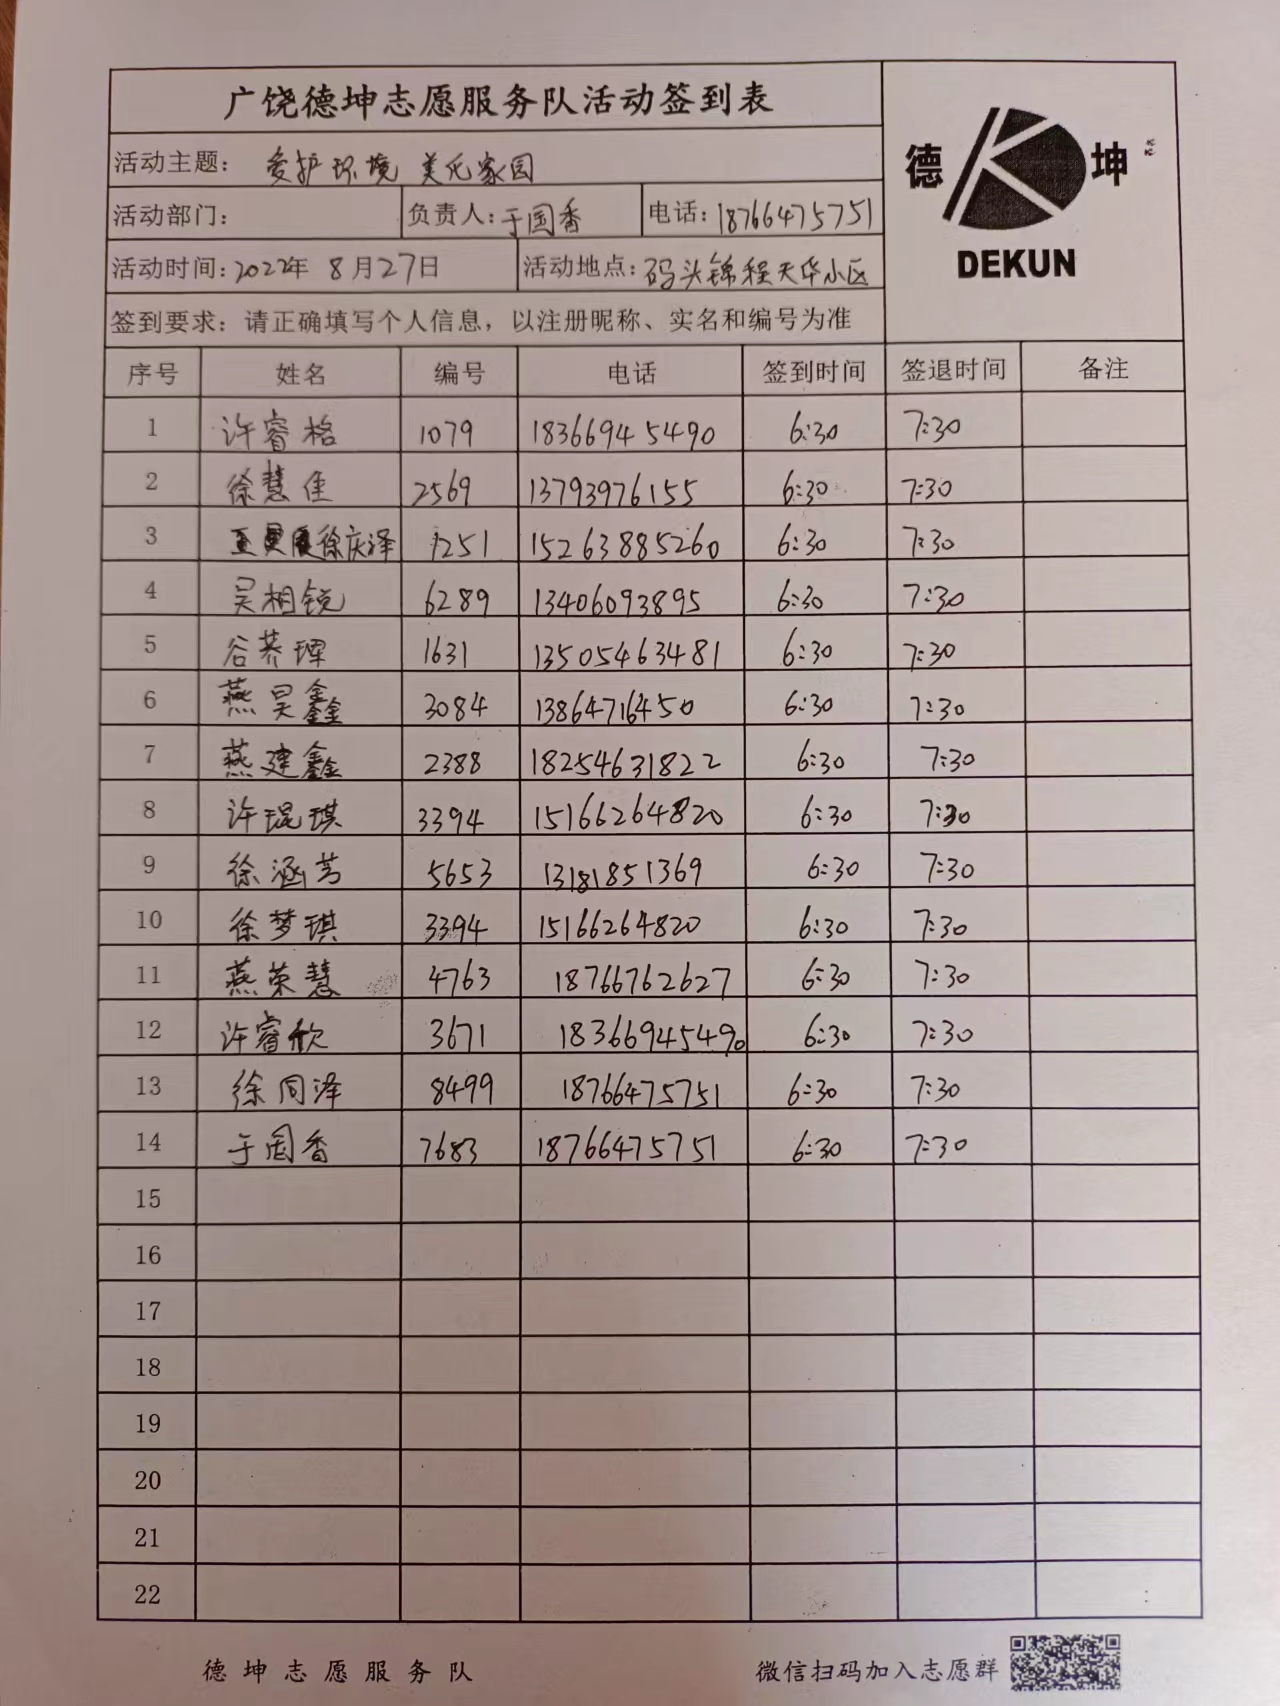 广饶德坤志愿服务队活动签到表
德 坤
DEKUN
活动主题: 爱护环境 美化家园
活动部门: 负责人: 于国香 电话: 18766475751
活动时间: 2022年 8月27日 活动地点: 码头锦程天华小区
签到要求: 请正确填写个人信息, 以注册昵称、实名和编号为准
序号 姓名 编号 电话 签到时间 签退时间 备注
1 许睿格 1079 18366945490 6:30 7:30
2 徐慧佳 2569 13793976155 6:30 7:30
3 徐庆泽 1251 15263885260 6:30 7:30
4 吴相锐 6289 13406093895 6:30 7:30
5 谷荞珲 1631 13505463481 6:30 7:30
6 燕昊鑫 3084 13864716450 6:30 7:30
7 燕建鑫 2388 18254631822 6:30 7:30
8 许琨琪 3394 15166264820 6:30 7:30
9 徐涵芳 5653 13181851369 6:30 7:30
10 徐梦琪 3394 15166264820 6:30 7:30
11 燕荣慧 4763 18766762627 6:30 7:30
12 许睿欣 3671 18366945490 6:30 7:30
13 徐同泽 8499 18766475751 6:30 7:30
14 于国香 7683 18766475751 6:30 7:30
15
16
17
18
19
20
21
22
德坤志愿服务队 微信扫码加入志愿群